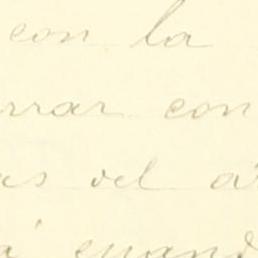 con la
rrar con
as del a
a cuand